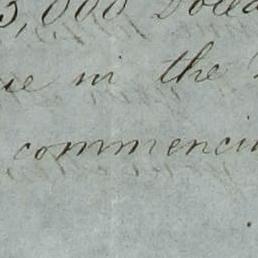 3,000 Dolla
ue in the
commencin